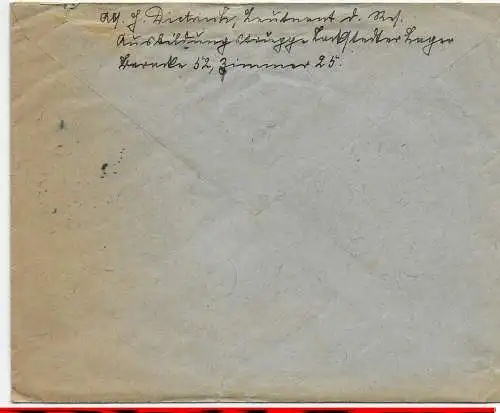 Abs. H. Dietrich, Leutnant d. Res.
Ausbildungstruppe Lockstedter Lager
Baracke 52, Zimmer 25.